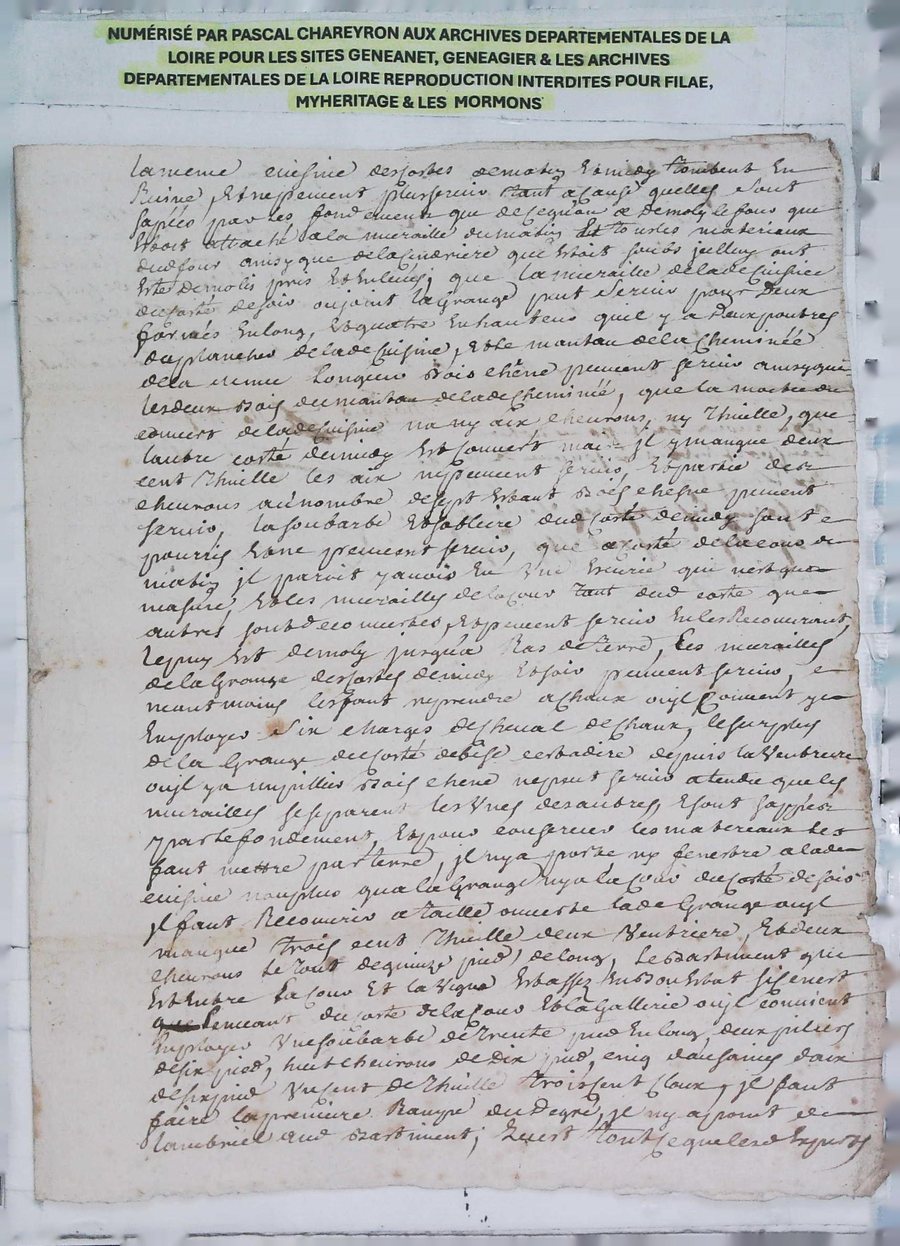 NUMÉRISÉ PAR PASCAL CHAREYRON AUX ARCHIVES DEPARTEMENTALES DE LA
LOIRE POUR LES SITES GENEANET, GENEAGIER & LES ARCHIVES
DEPARTEMENTALES DE LA LOIRE REPRODUCTION INTERDITES POUR FILAE,
MYHERITAGE & LES MORMONS
la meme cuisine des costes de matin Et midy tombent En
Ruine, Et ne peuvent plus servir tant a cause quelles sont
sapées par les fondement que de ce quon a demoly le four que
Estoit attaché a la muraille du matin tous les materiaux
dud four ainsy que de la que Estoit sur icelluy ont
Esté demolis pris Et Enlevés, que la muraille de lade Cuisine
du costé de soir ou joint la Grange peut servir pour deux
En long, Et quatre En hauteur quil y a deux poutres
du plancher de lade Cuisine, Et le manteau de la Cheminée
de la meme longueur bois chêne peuvent servir ainsy que
les deux bois du manteau de lade Cheminée, que la moitie du
couvert de lade Cuisine na ny aix cheurons, ny Thuille, que
lautre costé de midy Est Couvert mais jl y manque deux
cent Thuille les aix ne peuvent servir, Et partie des
cheurons au nombre de sept Estant bois chesne peuvent
servir, la soubarbe Et sabliere dud costé de midy sont
pourris Et ne peuvent servir, que a costé de la cour de
matin jl paroit y avoir Eu Une Ecurie qui nest que
masure, Et les murailles de la Cour tant dud costé que
autres sont decouvertes, Et peuvent servir En les Recouvrant,
le puy Est demoly jusqu'a Ras de terre, Les murailles
de la Grange des costes de midy Et soir peuvent servir,
neantmoins les faut reprendre a Chaux ou jl Convient y
Employer Six charges de cheval de Chaux, le surplus
de la Grange du costé de bise cest a dire depuis la Ventriere
ou jl ya un pillier bois chene ne peut servir atendu que les
murailles se separent les Unes des autres, Et sont sappées
par le fondement, Et pour conserver les materiaux les
faut mettre par terre, jl ny a porte ny fenestre a lade
cuisine non plus qua la Grange ny a la Cour du costé de soir
jl faut Recouvrir a taille ouverte lade Grange ou jl
manque trois cent Thuille deux Ventriere, Et deux
cheurons le Tout de quinze pied de long, le Bastiment qui
Est Entre la Cour Et la Vigne Est assez En Bon Estat si cenest
Lenceant du costé de la Cour Et la Gallerie ou jl convient
Employer Une soubarbe de Trente pied En long, deux piliers
de six pied, huit cheurons de Dix pied, cinq dousaines daix
de six pied Un cent de Thuille trois cent Cloux, jl faut
faire la premiere Rampe du Degré, jl ny a point de
lambrice aud Bastiment, Et cest tout ce que lesd Experts